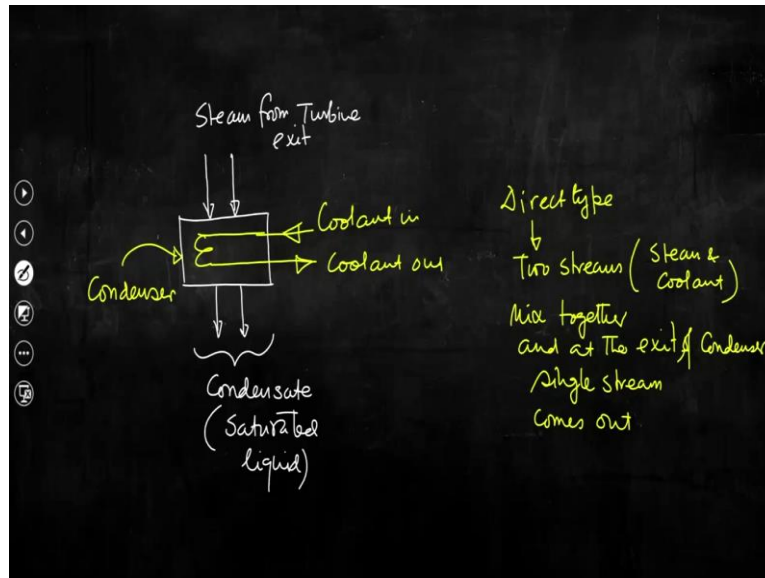 Steam from Turbine
exit
Coolant in
Coolant out
Condenser
Condensate
(Saturated
liquid)
Direct type
Two streams (Steam &
Coolant)
Mix together
and at the exit of Condenser
single stream
comes out